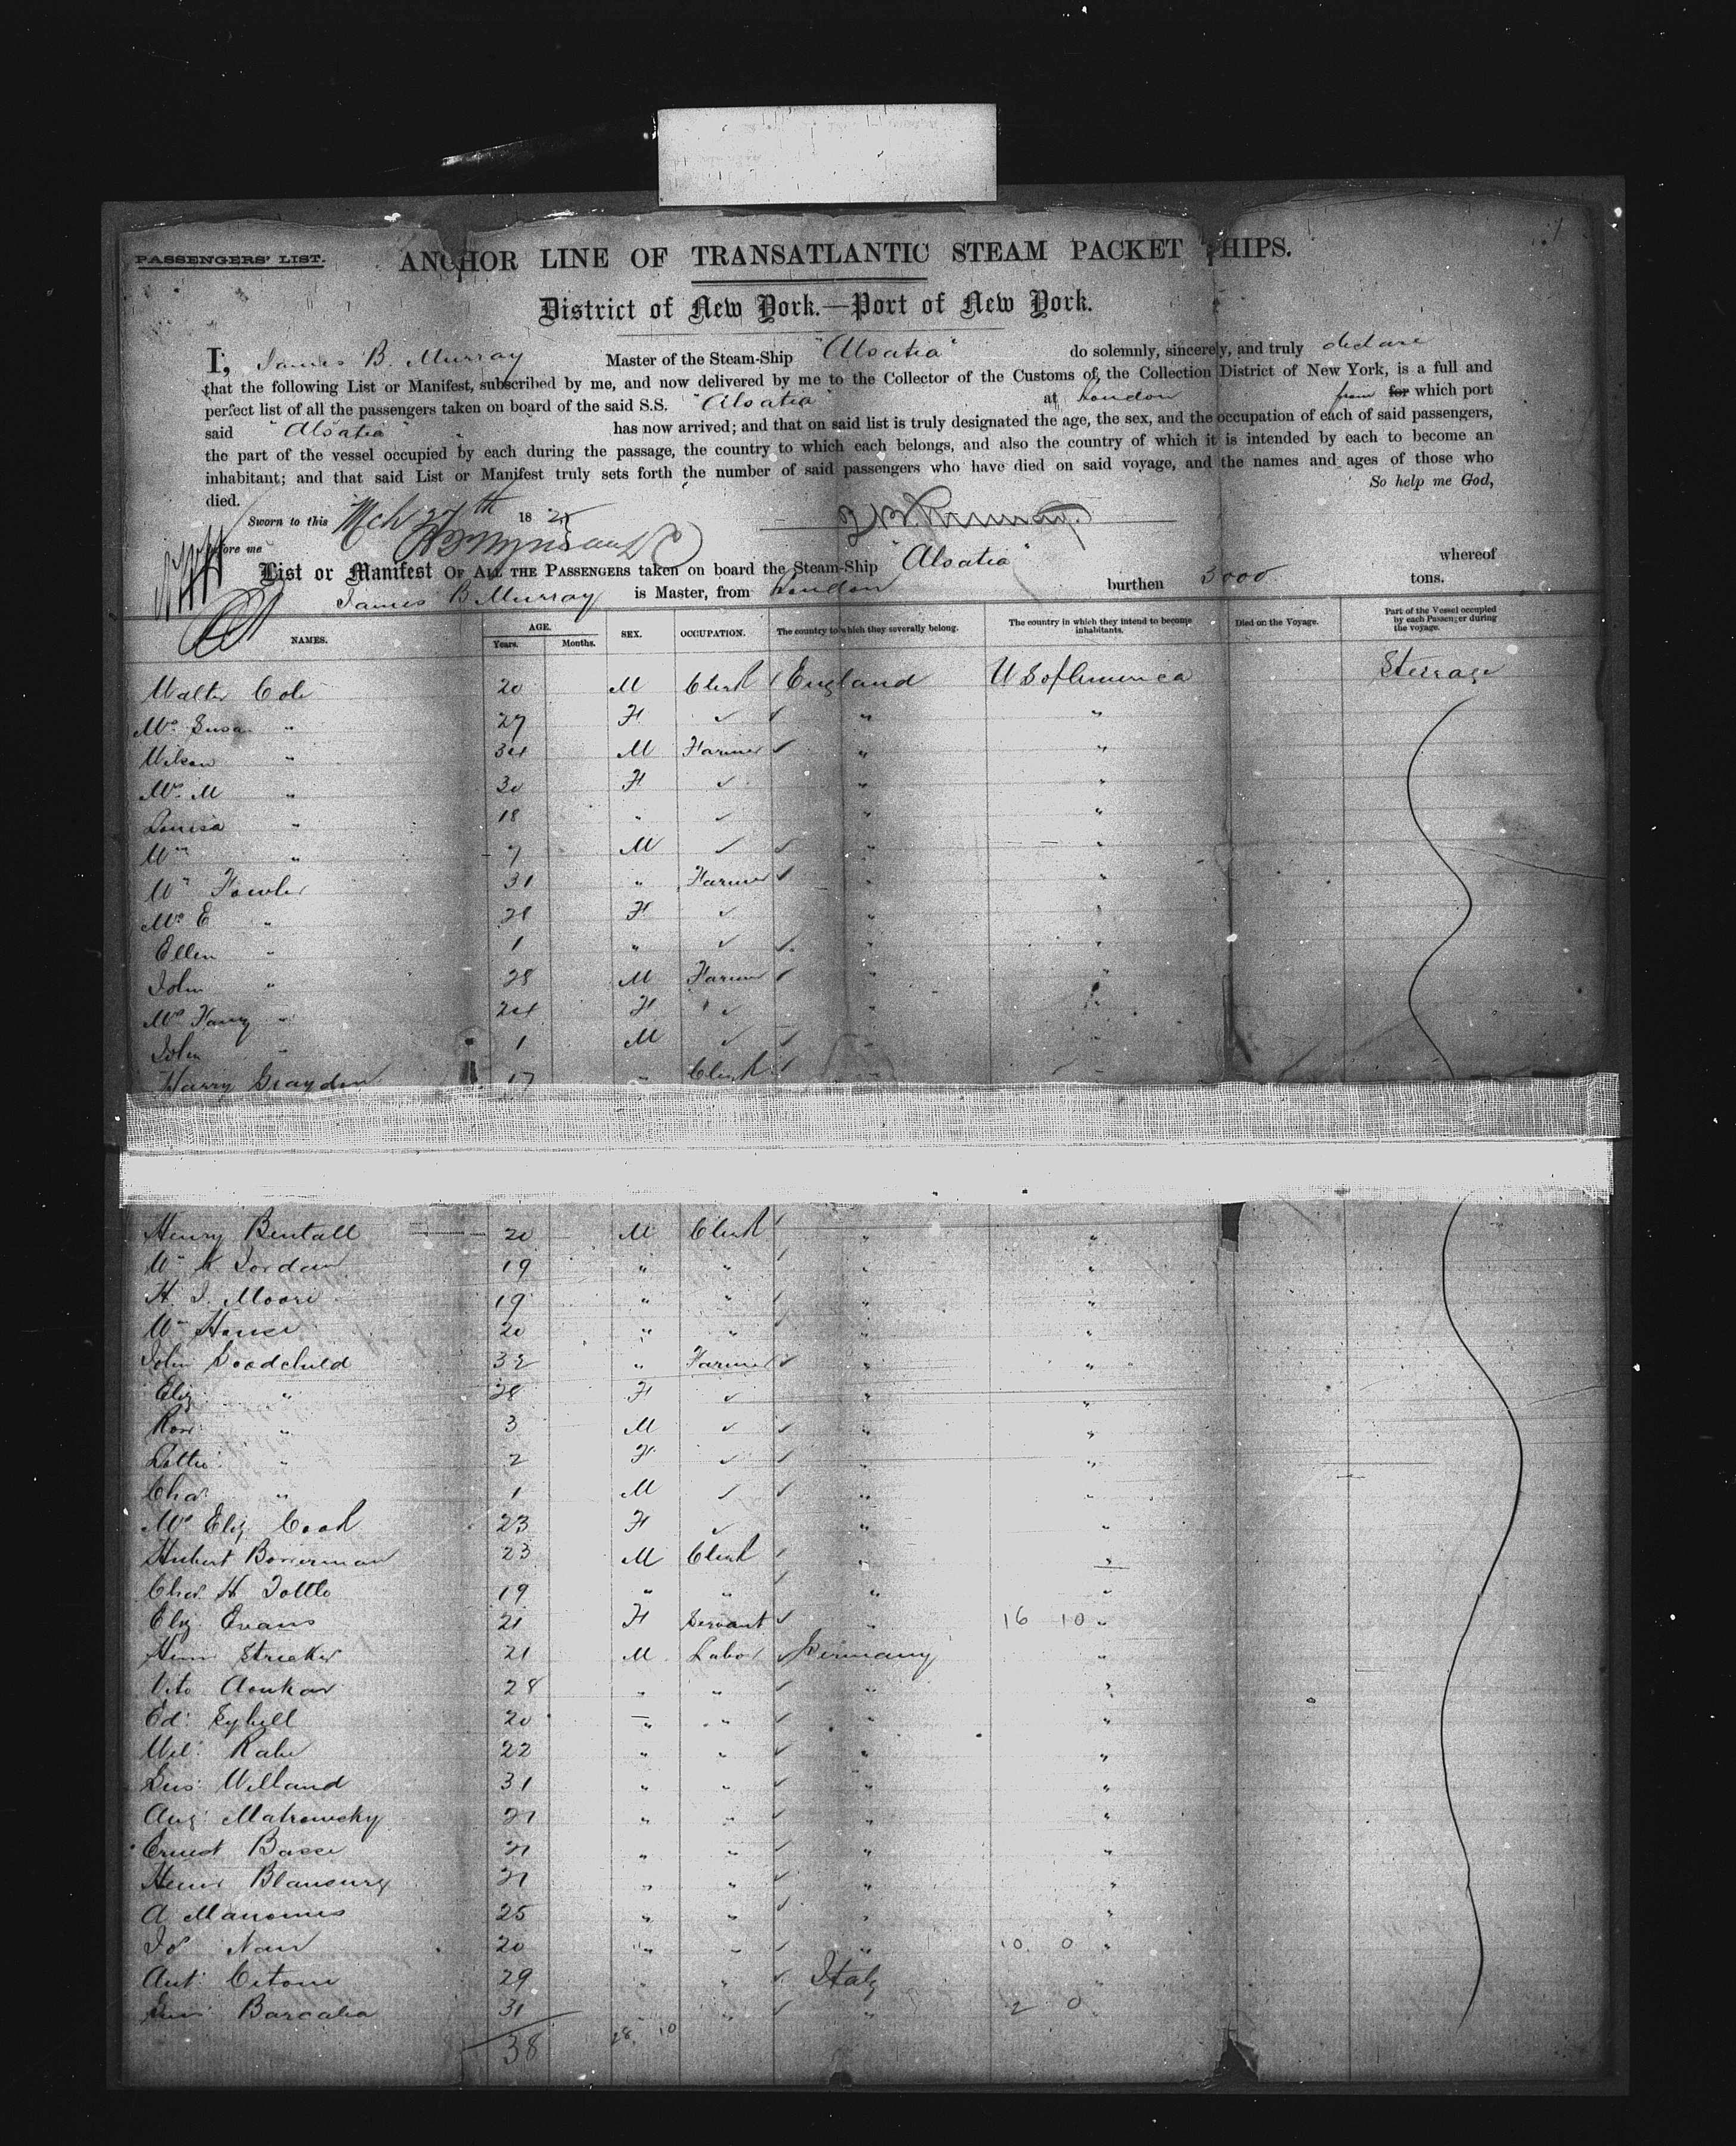 PASSENGERS' LIST.
ANCHOR LINE OF TRANSATLANTIC STEAM PACKET SHIPS.
District of New York.—Port of New York.
I, James B. Murray Master of the Steam-Ship "Alsatia" do solemnly, sincerely, and truly declare
that the following List or Manifest, subscribed by me, and now delivered by me to the Collector of the Customs of the Collection District of New York, is a full and
perfect list of all the passengers taken on board of the said S.S. "Alsatia" at London from for which port
said "Alsatia" has now arrived; and that on said list is truly designated the age, the sex, and the occupation of each of said passengers,
the part of the vessel occupied by each during the passage, the country to which each belongs, and also the country of which it is intended by each to become an
inhabitant; and that said List or Manifest truly sets forth the number of said passengers who have died on said voyage, and the names and ages of those who
died. So help me God,
Sworn to this Mch 27th 18
before me
List or Manifest OF ALL THE PASSENGERS taken on board the Steam-Ship "Alsatia" whereof
James B Murray is Master, from London burthen 3000 tons.
NAMES. AGE. Years. Months. SEX. OCCUPATION. The country to which they severally belong. The country in which they intend to become inhabitants. Died on the Voyage. Part of the Vessel occupied by each Passenger during the voyage.
Walter Cole 20 M Clerk England U S of America Sterrage
Mrs Susan " 27 F " "
Wilson " 34 M Farmer " "
Mrs M " 30 F " "
Louisa " 18 " " "
Wm " 7 M " "
Wm Fowler 31 " Farmer " "
Mrs E " 28 F " "
Ellen " 1 " " "
John " 28 M Farmer " "
Mrs Fanny " 24 F " "
John " 1 M " "
Harry Graydon 17 " Clerk
Henry Bentall 20 M Clerk " "
Wm K Jordan 19 " " " "
H. J. Moore 19 " " " "
Wm House 20 " " " "
John Goodchild 32 " Farmer " "
Eliz " 28 F " "
" 3 M " "
Lottie " 2 F " "
Chas " 1 M " "
Mrs Eliz Cook 23 F " "
Hubert Bowerman 23 M Clerk " "
Chas H Tottle 19 " " " "
Eliz Evans 21 F Servant " 16 10 "
Henr Streeker 21 M Labor Germany "
28 " " " "
Ed: 20 " " " "
Wil: Rabe 22 " " " "
Gus: Willand 31 " " " "
Aug: Matrowsky 21 " " " "
Ernest Basse 21 " " " "
Henr 21 " " " "
A 25 " " " "
20 " " " 10 0 "
Ant: Citoni 29 " " Italy "
Barcalia 31 " " 2 0
38 28 10